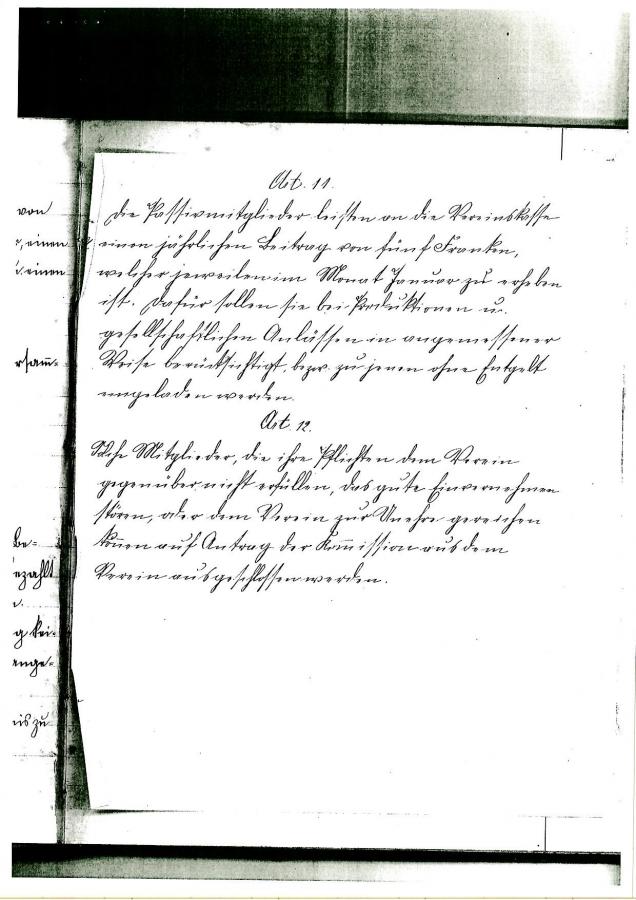 von
einen
einen
rsam̄-
be-
ezahlt
g kei-
ange-
is zu
Art. 11.
Die Passivmitglieder leisten an die Vereinskasse
einen jährlichen Beitrag von fünf Franken,
welcher jeweilen im Monat Januar zu erheben
ist. Dafür sollen sie bei Produktionen u.
gesellschaftlichen Anlässen in angemessener
Weise berücksichtigt, bezw. zu jenen ohne Entgelt
eingeladen werden.
Art. 12.
Solche Mitglieder, die ihre Pflichten dem Verein
gegenüber nicht erfüllen, das gute Einvernehmen
stören, oder dem Verein zur Unehre gereichen
kön̄en auf Antrag der Kom̄ission aus dem
Verein ausgeschlossen werden.